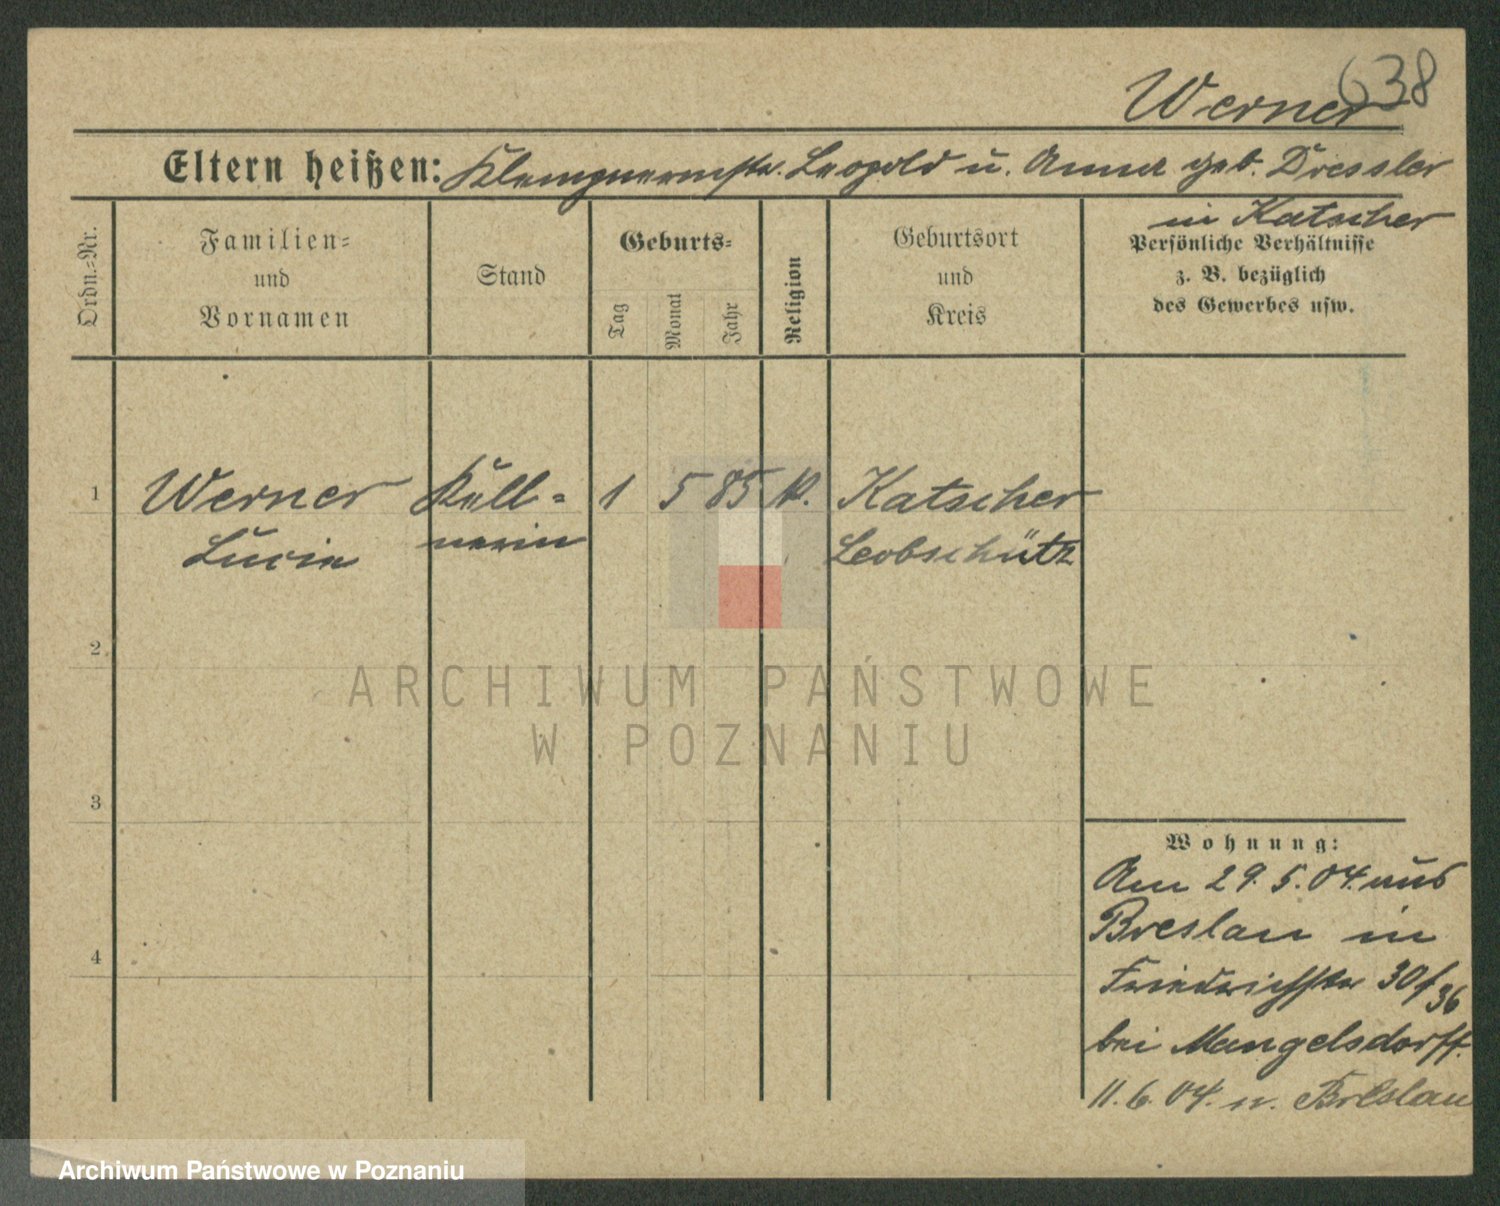 638
Werner
Eltern heißen: Klempnermstr. Leopold u. Anna geb. Dressler
in Katscher
Ordn.-Nr.
Familien-
und
Vornamen
Stand
Geburts-
Tag
Monat
Jahr
Religion
Geburtsort
und
Kreis
Persönliche Verhältnisse
z. B. bezüglich
des Gewerbes usw.
1 Werner Kell- 1 5 85 k. Katscher
Lucie nerin Leobschütz
2
ARCHIWUM PAŃSTWOWE
W POZNANIU
3
Wohnung:
Am 29.5.04. aus
Breslau in
4
Friedrichstr 30/36
bei Mangelsdorff.
11.6.04. n. Breslau
Archiwum Państwowe w Poznaniu